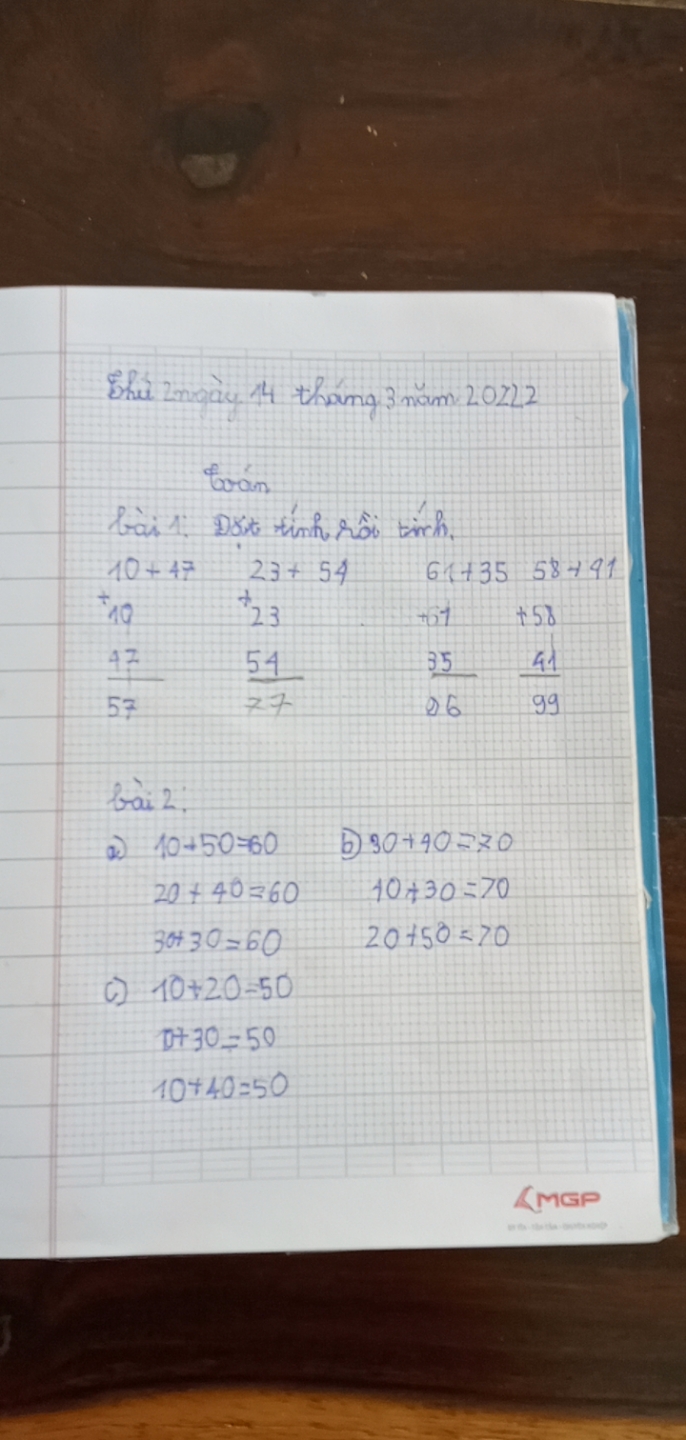 Thứ 2 ngày 14 tháng 3 năm 2022
Toán
bài 1: Đặt tính rồi tính.
10+47 23+54 61+35 58+41
+10 +23 +61 +58
47 54 35 41
57 77 96 99
bài 2:
a) 10+50=60 b) 30+40=70
20+40=60 10+30=70
30+30=60 20+50=70
c) 10+20=50
0+30=50
10+40=50
MGP